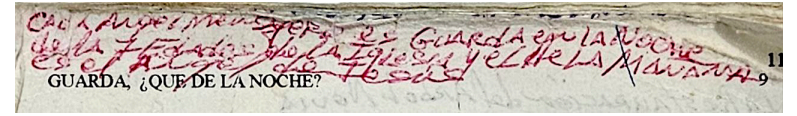 CADA Angel MensaGero es GUARDA en LA NOCHE
de lA 7 Edades de lA Iglesia y el de LA MAÑANA
es el Angel de Jesus
11
GUARDA, ¿QUE DE LA NOCHE? 9